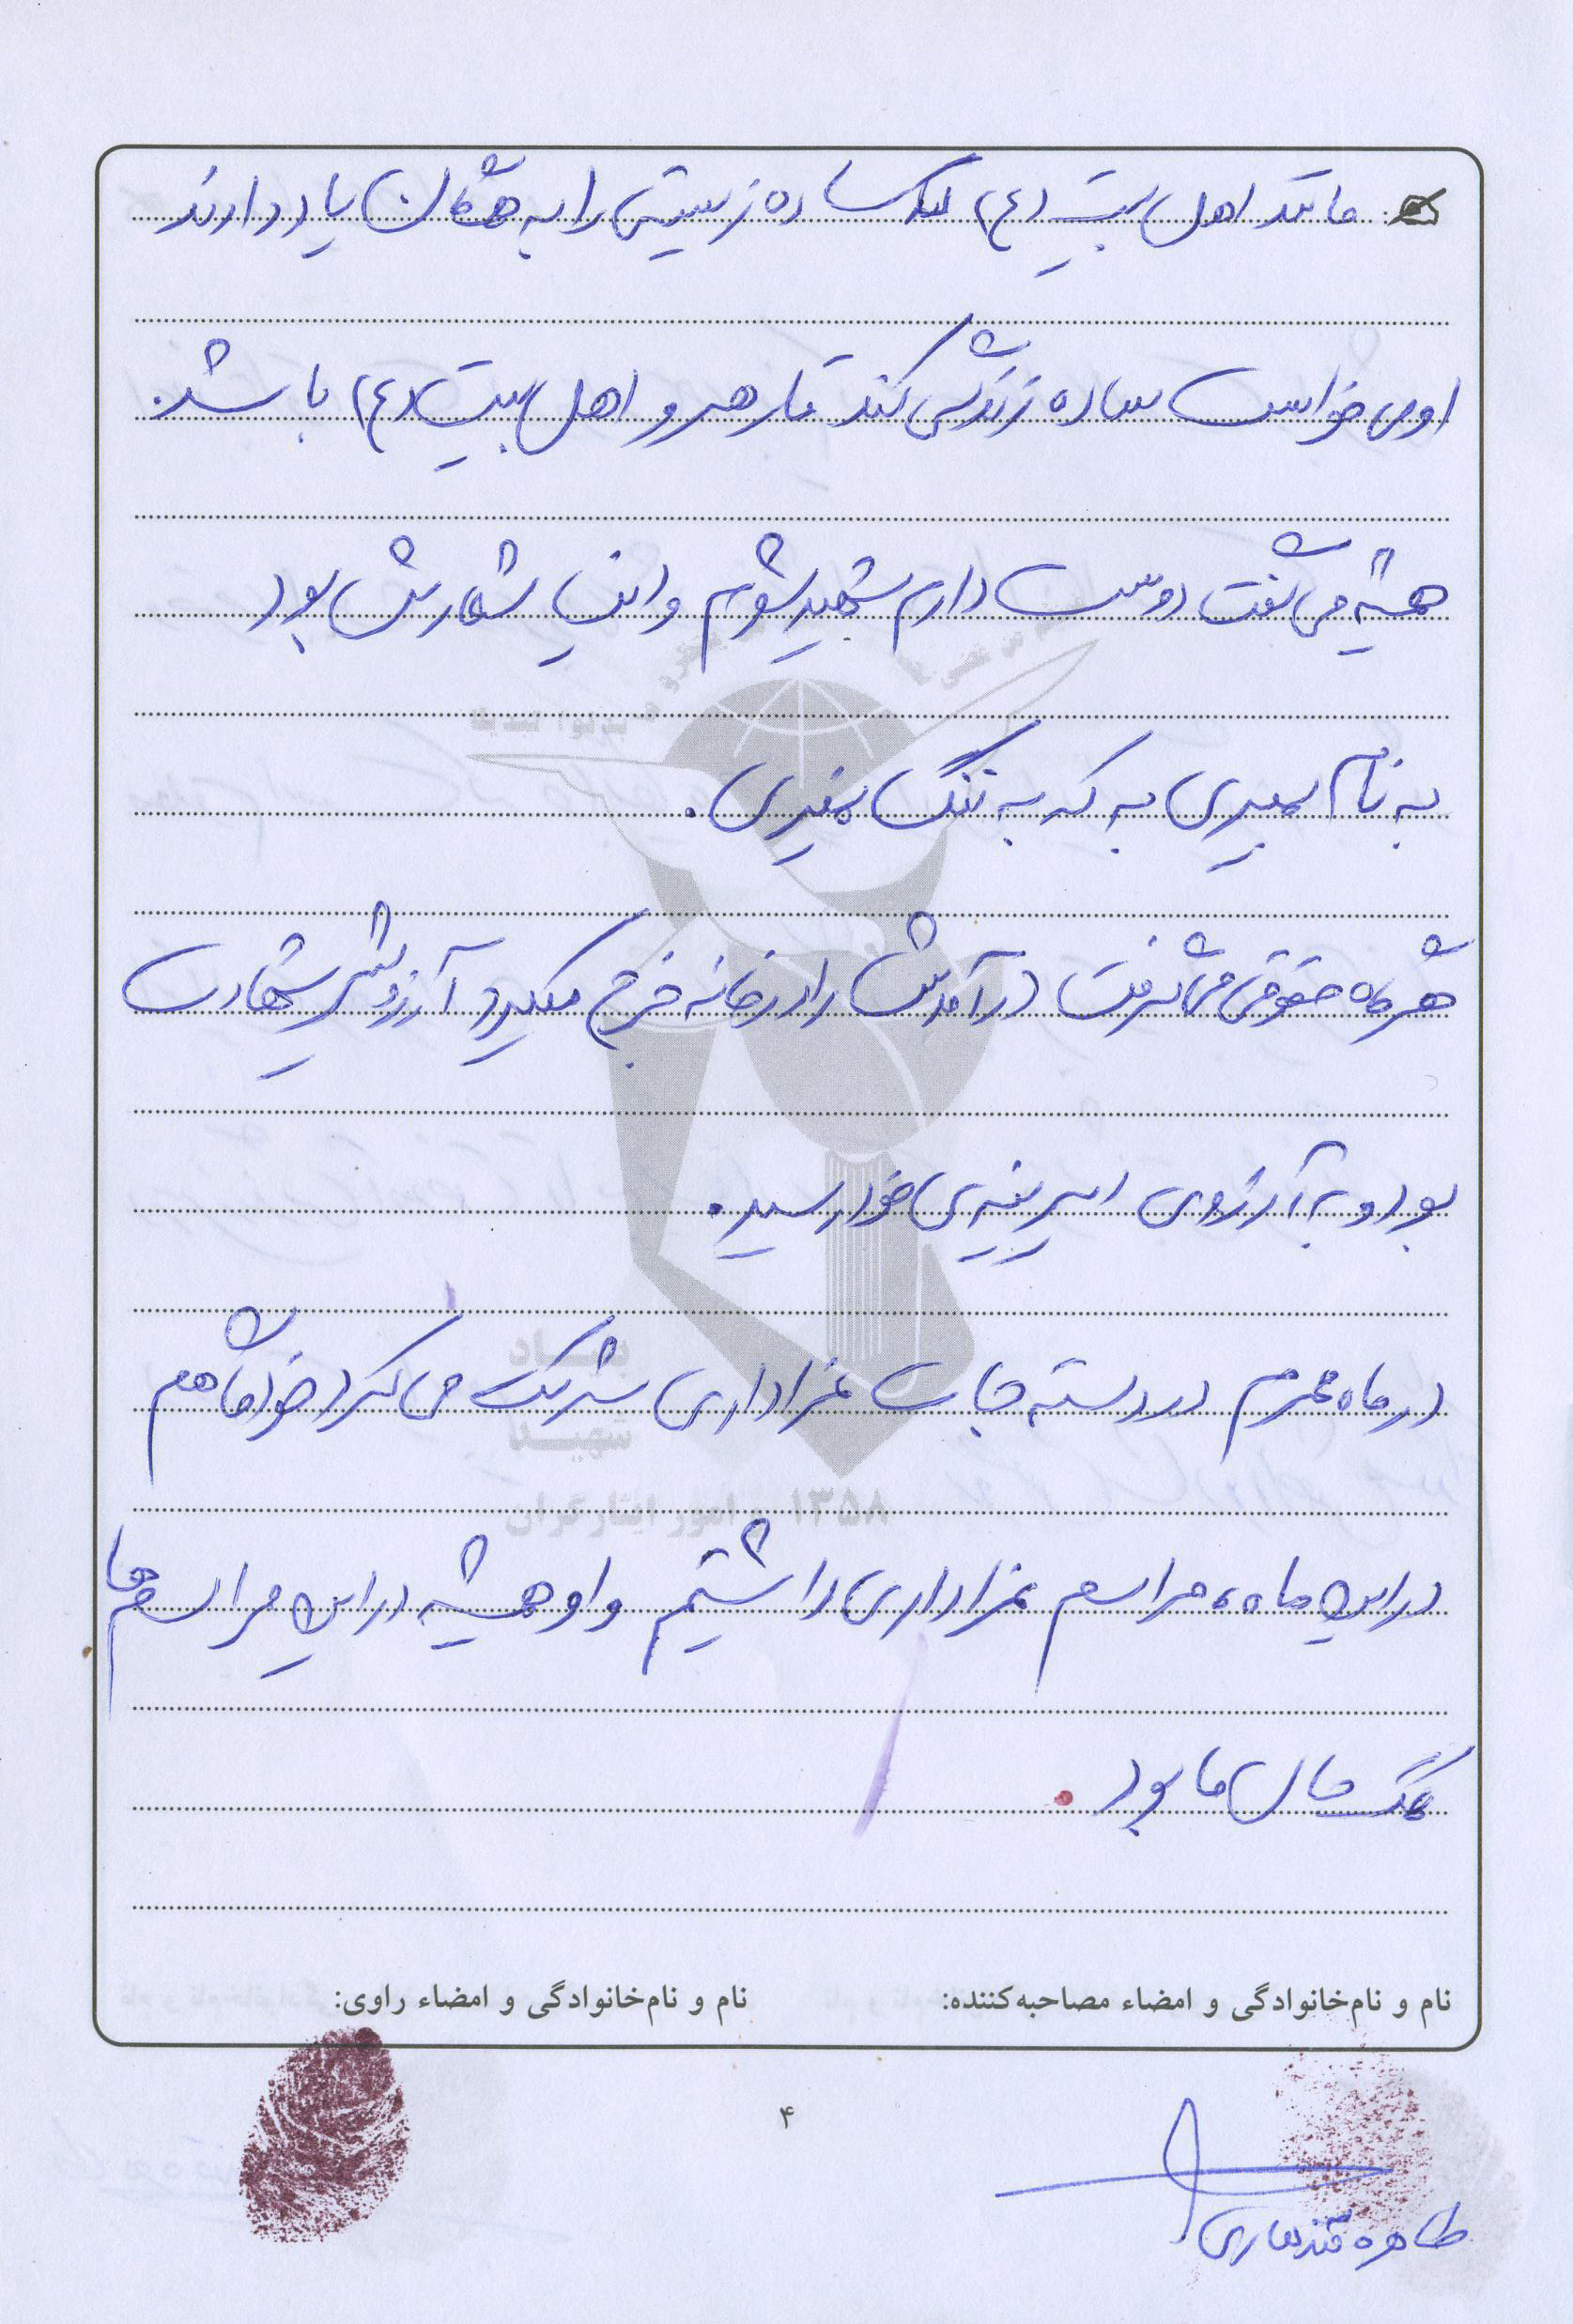 مانند اهل بیت (ع) که ساده زیستی را به همگان یاد دادند
او می خواست ساده زندگی کند تا رهرو اهل بیت (ع) باشد.
همیشه می گفت دوست دارم شهید شوم و این شعارش بود
به نام بمیری به که به ننگ بمیری.
هر ماه حقوقی می گرفت درآمدش را در خانه خرج میکرد و آرزویش شهادت
بود و به آرزوی دیرینه ی خود رسید.
در ماه محرم در دسته جات عزاداری شرکت می کرد خود ما هم
در این ماه، مراسم عزاداری داشتیم و او همیشه در این مراسم ها
کمک حال ما بود.
نام و نام‌خانوادگی و امضاء مصاحبه‌کننده: نام و نام‌خانوادگی و امضاء راوی:
۴
طاهره قندهاری
بنیاد
شهید
و امور ایثارگران ۱۳۵۸